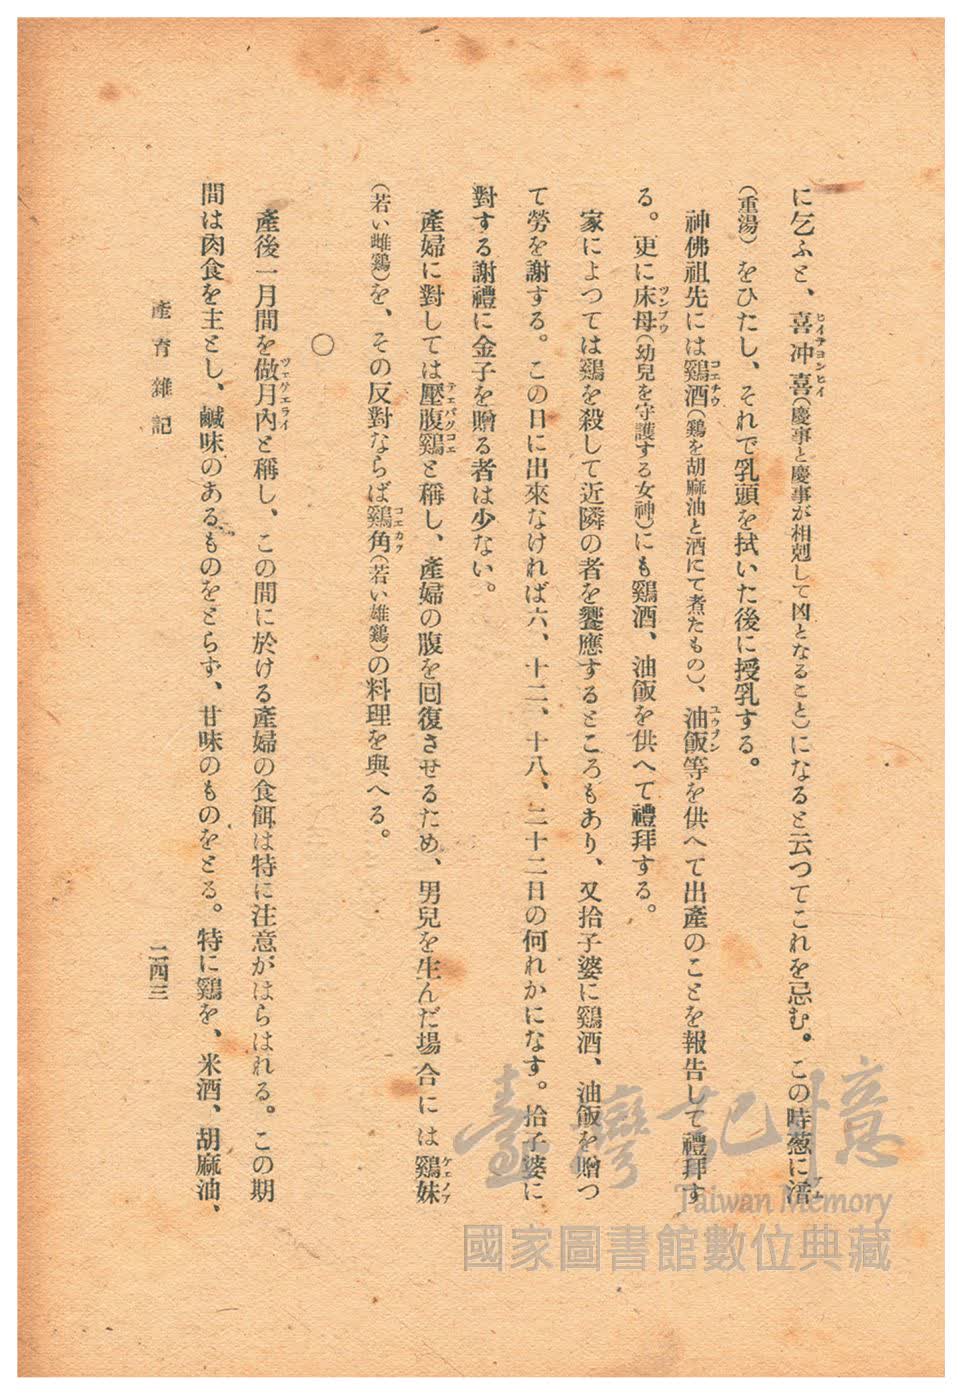 に乞ふと、喜冲喜(慶事と慶事が相剋して凶となること)になると云つてこれを忌む。この時葱に潘
(重湯)をひたし、それで乳頭を拭いた後に授乳する。
神佛祖先には鷄酒(鷄を胡麻油と酒にて煮たもの)、油飯等を供へて出產のことを報告して禮拜す
る。更に床母(幼兒を守護する女神)にも鷄酒、油飯を供へて禮拜する。
家によつては鷄を殺して近隣の者を饗應するところもあり、又拾子婆に鷄酒、油飯を贈つ
て勞を謝する。この日に出來なければ六、十二、十八、二十二日の何れかになす。拾子婆に
對する謝禮に金子を贈る者は少ない。
產婦に對しては壓腹鷄と稱し、產婦の腹を回復させるため、男兒を生んだ場合には鷄妹
(若い雌鷄)を、その反對ならば鷄角(若い雄鷄)の料理を與へる。
〇
產後一月間を做月內と稱し、この間に於ける產婦の食餌は特に注意がはらはれる。この期
間は肉食を主とし、鹹味のあるものをとらず、甘味のものをとる。特に鷄を、米酒、胡麻油、
產育雜記
二四三
臺灣記憶
Taiwan Memory
國家圖書館數位典藏